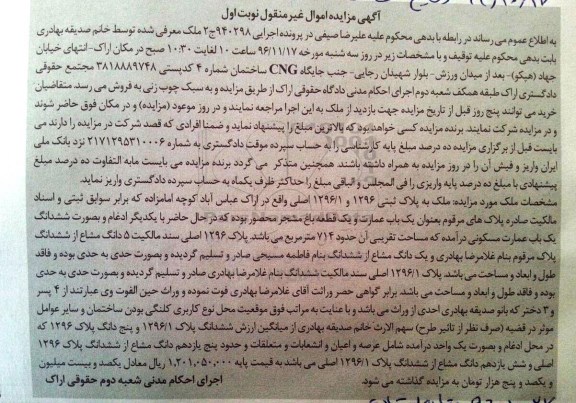 آگهی مزایده اموال غیر منقول نوبت اول
به اطلاع عموم می رساند در رابطه با بدهی محکوم علیه علیرضا صیفی در پرونده اجرایی ۹۴۰۲۹۸ج۲ ملک معرفی شده توسط خانم صدیقه بهادری
بابت بدهی محکوم علیه توقیف و با مشخصات زیر در روز سه شنبه مورخه ۹۶/۱۱/۱۷ ساعت ۱۰ لغایت ۱۰:۳۰ صبح در مکان اراک-انتهای خیابان
جهاد (هپکو)- بعد از میدان ورزش- بلوار شهیدان رجایی- جنب جایگاه CNG ساختمان شماره ۴ کدپستی ۳۸۱۸۸۸۹۷۴۸ مجتمع حقوقی
دادگستری اراک طبقه همکف شعبه دوم اجرای احکام مدنی دادگاه حقوقی اراک از طریق مزایده و به سبک چوب زنی به فروش می رسد. متقاضیان
خرید می توانند پنج روز قبل از تاریخ مزایده جهت بازدید از ملک به این اجرا مراجعه نمایند و در روز موعود (مزایده) و در مکان فوق حاضر شوند
و در مزایده شرکت نمایند. برنده مزایده کسی خواهد بود که بالاترین مبلغ را پیشنهاد نماید و ضمنا افرادی که قصد شرکت در مزایده را دارند می
بایست قبل از برگزاری مزایده ده درصد مبلغ پایه کارشناسی را به حساب سپرده موقت دادگستری به شماره ۲۱۷۱۲۹۵۳۱۰۰۰۶ نزد بانک ملی
ایران واریز و فیش آن را در روز مزایده به همراه داشته باشند. همچنین متذکر می گردد برنده مزایده می بایست مابه التفاوت ده درصد مبلغ
پیشنهادی با مبلغ ده درصد پایه واریزی را فی المجلس و الباقی مبلغ را حداکثر ظرف یکماه به حساب سپرده دادگستری واریز نماید.
مشخصات ملک مورد مزایده: ملک به پلاک ثبتی ۱۲۹۶ و ۱۲۹۶/۱ اصلی واقع در اراک عباس آباد کوچه امامزاده که برابر سوابق ثبتی و اسناد
مالکیت صادره پلاک های مرقوم بعنوان یک باب عمارت و یک قطعه باغ مشجر محصور بوده که در حال حاضر با یکدیگر ادغام و بصورت ششدانگ
یک باب عمارت مسکونی درآمده که مساحت تقریبی آن حدود ۷۱۴ مترمربع می باشد. پلاک ۱۲۹۶ اصلی سند مالکیت ۵ دانگ مشاع از ششدانگ
پلاک مرقوم بنام غلامرضا بهادری و یک دانگ مشاع از ششدانگ بنام فاطمه مسیحی صادر و تسلیم گردیده و بصورت حدی به حدی بوده و فاقد
طول و ابعاد و مساحت می باشد. پلاک ۱۲۹۶/۱ اصلی سند مالکیت ششدانگ بنام غلامرضا بهادری صادر و تسلیم گردیده و بصورت حدی به حدی
بوده و فاقد طول و ابعاد و مساحت می باشد. برابر گواهی حصر وراثت آقای غلامرضا بهادری فوت نموده و وراث حین الفوت وی عبارتند از ۴ پسر
و ۳ دختر که بانو صدیقه بهادری احدی از وراث می باشد و با عنایت به مراتب فوق موقعیت محل نوع کاربری کلنگی بودن ساختمان و سایر عوامل
موثر در قضیه (صرف نظر از تاثیر طرح) سهم الارث خانم صدیقه بهادری از میانگین ارزش ششدانگ پلاک ۱۲۹۶/۱ و پنج دانگ پلاک ۱۲۹۶ که
در محل ادغام و بصورت یک واحد درآمده شامل عرصه و اعیان و انشعابات و متعلقات و حدود پنج یازدهم دانگ مشاع از ششدانگ پلاک ۱۲۹۶
اصلی و شش یازدهم دانگ مشاع از ششدانگ پلاک ۱۲۹۶/۱ اصلی می باشد به قیمت پایه ۱,۲۰۱,۰۵۰,۰۰۰ ریال معادل یکصد و بیست میلیون
و یکصد و پنج هزار تومان به مزایده گذاشته می شود. اجرای احکام مدنی شعبه دوم حقوقی اراک